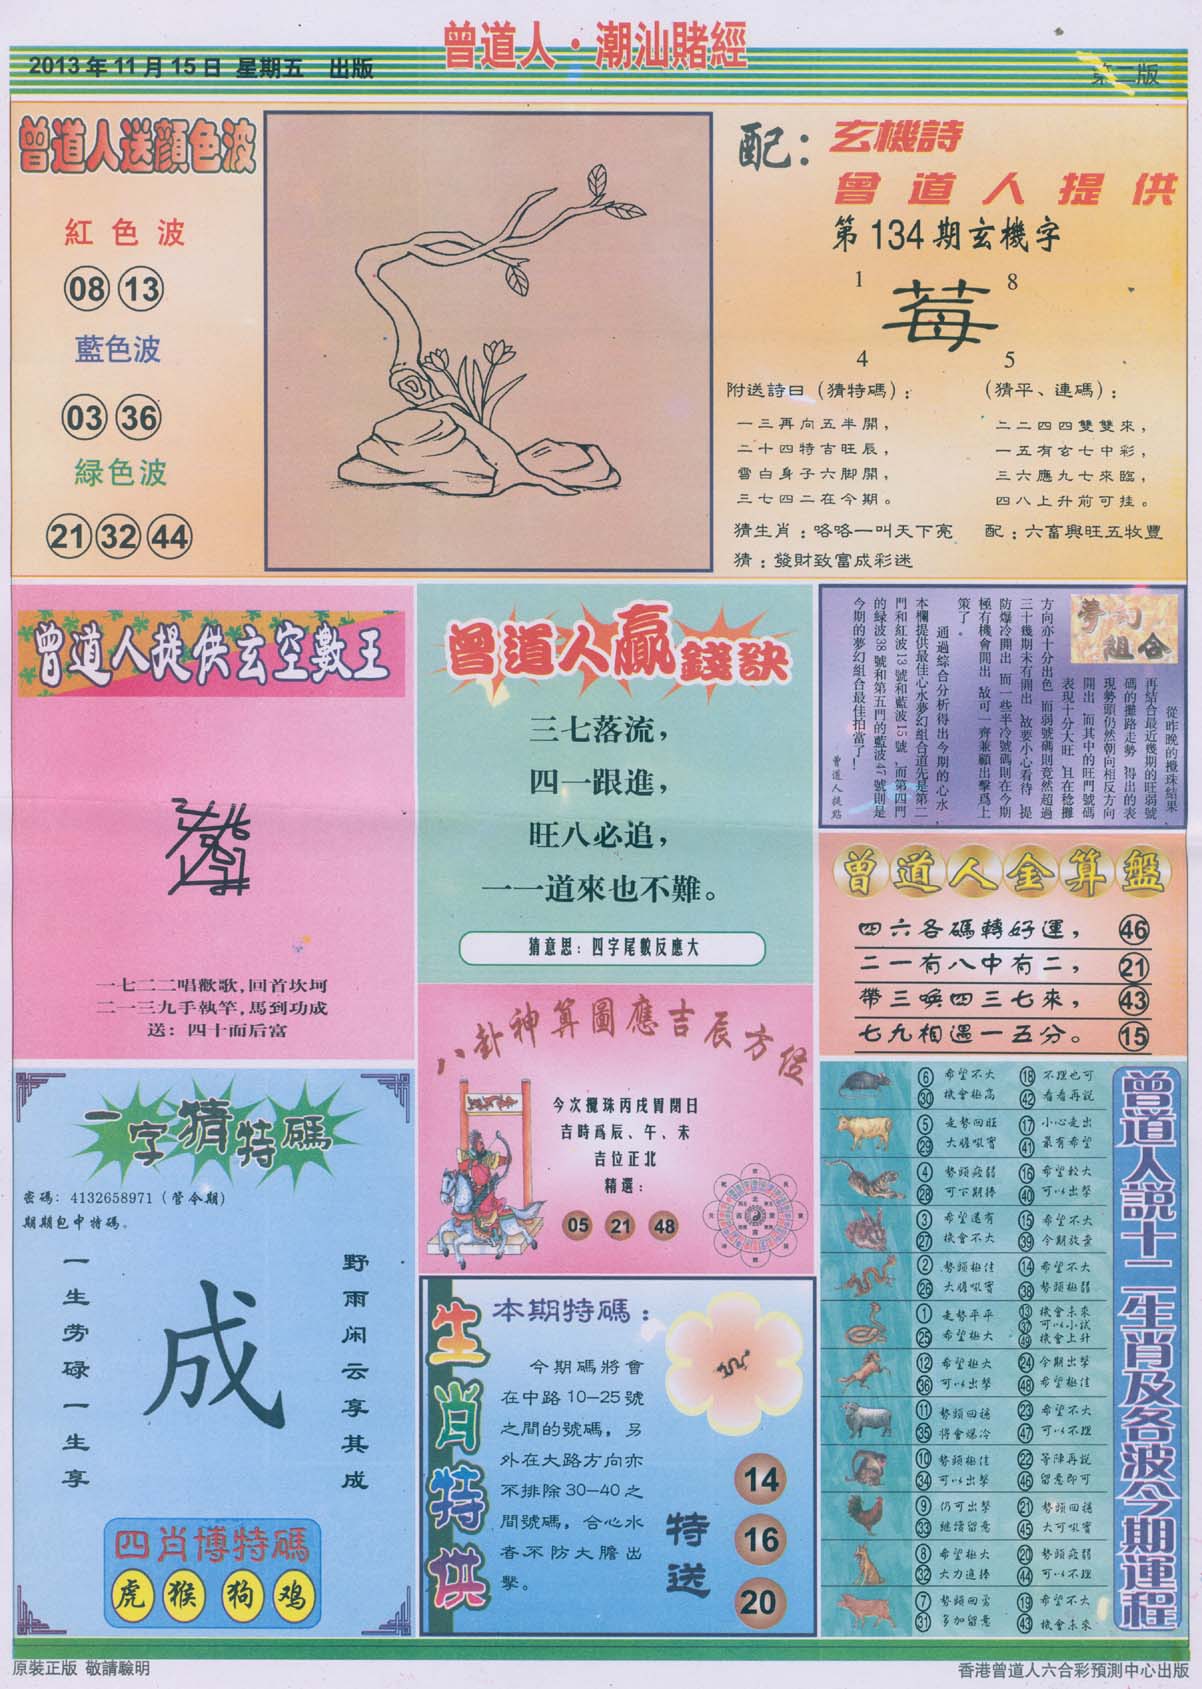 曾道人·潮汕賭經
2013年11月15日 星期五 出版
第二版
曾道人送顔色波
紅色波
08 13
藍色波
03 36
緑色波
21 32 44
配：玄機詩
曾道人提供
第134期玄機字
1 8
莓
4 5
附送詩曰（猜特碼）：
一三再向五半開，
二十四特吉旺辰，
雪白身子六脚開，
三七四二在今期。
（猜平、連碼）：
二二四四雙雙來，
一五有玄七中彩，
三六應九七來臨，
四八上升前可挂。
猜生肖：咯咯一叫天下亮 配：六畜興旺五牧豐
猜：發財致富成彩迷
曾道人提供玄空數王
一七二二唱歡歌，回首坎坷
二一三九手執竿，馬到功成
送：四十而后富
曾道人贏錢訣
三七落流，
四一跟進，
旺八必追，
一一道來也不難。
猜意思：四字尾數反應大
夢幻組合
從昨晚的攪珠結果
再結合最近幾期的旺弱號
碼的攤路走勢，得出的表
現勢頭仍然朝向相反方向
開出，而其中的旺門號碼
表現十分大旺，且在稔攤
方向亦十分出色，而弱號碼則竟然超過
三十幾期未有開出，故要小心看待，提
防爆冷開出，而一些半冷號碼則在今期
極有機會開出，故可一齊兼顧出擊爲上
策了。
通過綜合分析得出今期的心水，
本欄提供最佳心水夢幻組合道先是第二
門和紅波13號和藍波15號，而第四門
的緑波38號和第五門的藍波47號則是
今期的夢幻組合最佳拍當了！
曾道人提點
曾道人金算盤
四六各碼轉好運， 46
二一有八中有二， 21
帶三喚四三七來， 43
七九相遇一五分。 15
八卦神算圖應吉辰方位
今次攪珠丙戌胃閉日
吉時爲辰、午、未
吉位正北
精選：
05 21 48
一字猜特碼
密碼：4132658971（管令期）
期期包中特碼。
一生劳碌一生享
成
野雨闲云享其成
四肖博特碼
虎 猴 狗 鸡
生肖特供
本期特碼：
今期碼將會
在中路10—25號
之間的號碼，另
外在大路方向亦
不排除30—40之
間號碼，合心水
者不防大膽出
擊。
特送
14
16
20
曾道人説十二生肖及各波今期運程
6 希望不大 18 不理也可
30 機會極高 42 看看再説
5 走勢回旺 17 小心走出
29 大膽吼實 41 最有希望
4 勢頭疲弱 16 希望較大
28 可下期捧 40 可以出擊
3 希望還有 15 希望不大
27 機會不大 39 今期放棄
2 勢頭極佳 14 希望不大
26 大膽吼實 38 勢頭極弱
1 走勢平平 13 機會未來
37 可以小試
25 希望極大 49 機會上升
12 希望極大 24 今期出擊
36 可以出擊 48 希望極佳
11 勢頭回穩 23 希望不大
35 將會爆冷 47 可以不理
10 勢頭極佳 22 等陣再説
34 可以出擊 46 留意即可
9 仍可出擊 21 勢頭回穩
33 繼續留意 45 大可吼實
8 希望極大 20 勢頭疲弱
32 大力追捧 44 可以不理
7 勢頭回勇 19 希望不大
31 多加留意 43 機會未來
原裝正版 敬請驗明
香港曾道人六合彩預測中心出版